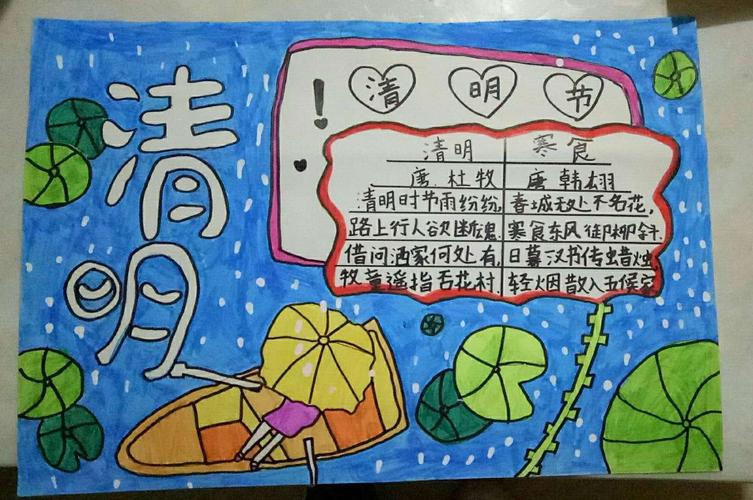 清明
清 明 节
清明
唐 杜牧
清明时节雨纷纷,
路上行人欲断魂.
借问洒家何处有,
牧童遥指否花村.
寒食
唐 韩翃
春城无处不名花,
寒食东风御柳斜.
日暮汉书传蜡烛,
轻烟散入五侯家